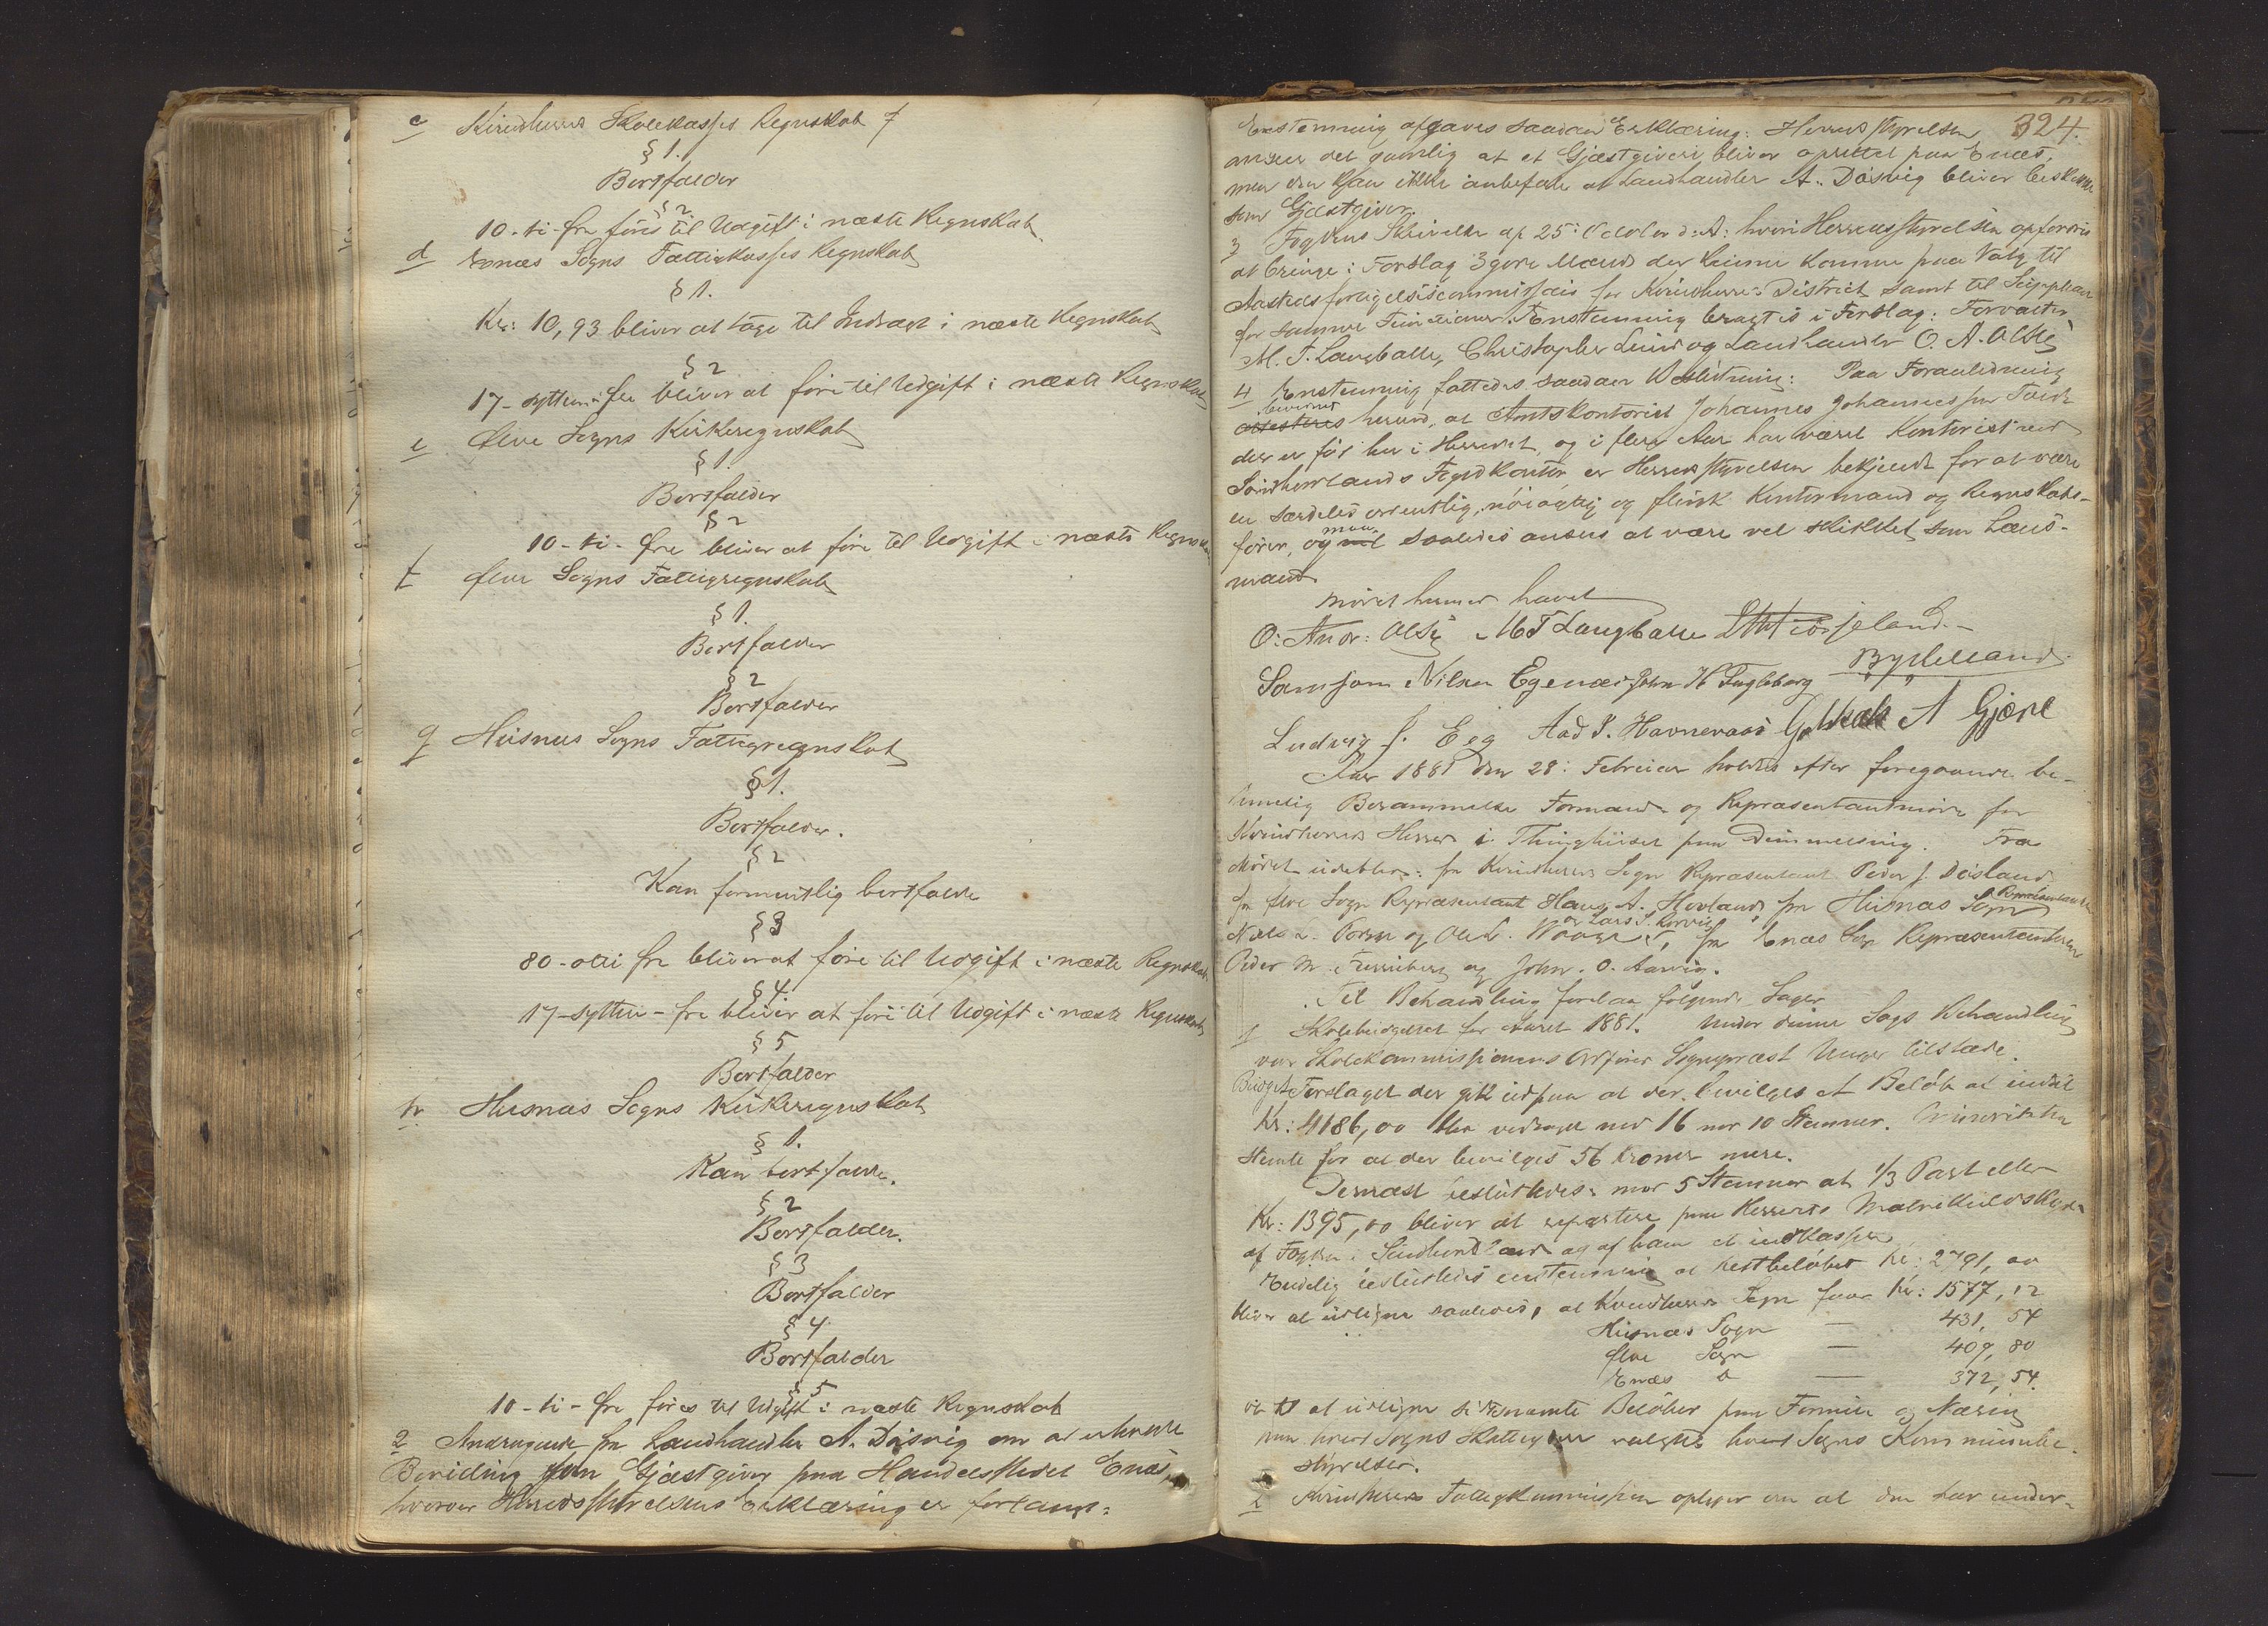 c Kvindherreds Skolekasses Regnskab
§ 1.
Bortfalder
§ 2
10 - ti - Øre føres til Udgift i næste Regnskab
d Enæs Sogns Fattigkasses Regnskab
§ 1.
Kr: 10,93 bliver at tage til Indtægt i næste Regnskab
§ 2
17 - sytten - Øre bliver at føre til Udgift i næste Regnskab
e Ølve Sogns Kirkeregnskab
§ 1.
Bortfalder
§ 2
10 - ti - Øre bliver at føre til Udgift i næste Regnskab
f Ølve Sogns Fattigregnskab
§ 1.
Bortfalder
§ 2
Bortfalder
g Husnæs Sogns Fattigregnskab
§ 1.
Bortfalder.
§ 2
Kan formentlig bortfalde
§ 3
80 - otti Øre bliver at føre til Udgift i næste Regnskab.
§ 4.
17 - sytten - Øre bliver at føre til Udgift i næste Regnskab
§ 5
Bortfalder
h Husnæs Sogns Kirkeregnskab
§ 1.
Kan bortfalde.
§ 2
Bortfalder.
§ 3
Bortfalder
§ 4
Bortfalder
§ 5
10 - ti - Øre føres til Udgift i næste Regnskab
2 Andragende fra Landhandler A. Døsvig om at erholde
Bevilling som Gjæstgiver paa Handelsstedet Enæs,
hvorover Herredsstyrelsens Erklæring er forlangt:
324.
Enstemmig afgaves saadan Erklæring: Herredsstyrelsen
anseer det gavnlig at et Gjæstgiveri bliver oprettet paa Enæs,
men den kan ikke anbefale at Landhandler A. Døsvig bliver beskikket
som Gjæstgiver.
3 Fogdens Skrivelse af 25: October d: A: hvori Herredsstyrelsen opfordres
at bringe i Forslag 3 gode Mænd der kunne komme paa Valg til
Aastedsforligelsescommissair for Kvindherreds District samt til Suppleant
for samme Functioner. Enstemmig bragtes i Forslag: Forvalter
M. T. Langballe, Christopher Lund og Landhandler O. A. Olsen
4 Enstemmig fattedes saadan Beslutning: Paa Foranledning
bevidnes
attesteres herved, at Amtskontorist Johannes Johannessen
der er født her i Herredet og i flere Aar har været Kontorist ved
Søndhordlands Fogedkontor er Herredsstyrelsen bekjendt for at være
en særdeles ordentlig, nøiagtig og flink Kontormand og Regnskabs-
maa
fører, og vil saaledes ansees at være vel skikket som Lens-
mand.
Mødet hermed hævet
O: Andr: Olsen M T Langballe
Samson Nilsen Egenæs John H Fugleberg
Ludvig J. Eeg Aad P. Havneraas A Gjøre
Aar 1881 den 28: Februar holdtes efter foregaaende be-
timelig Berammelse Formands og Repræsentantmøde for
Kvindherreds Herred i Thinghuset paa Dimmelsvig. Fra
Mødet udeblev: fra Kvindherreds Sogn Repræsentant Peder J. Døsland
fra Ølve Sogn Repræsentant Hans A. Hovland fra Husnæs Sogn Repræsentanterne
og Lars S. Rørvig
og Ole L. fra Enæs Sogn Repræsentanterne
Peder M. og John O. Aarvig.
Til Behandling forelaa følgende Sager
1 Skolebudgettet for Aaret 1881. Under denne Sags Behandling
var Skolekommissionens Ordfører Sognepræst Unger tilstæde.
Budget Forslaget der gik ud paa at der bevilges et Beløb at indtil
Kr: 4186,00 blev vedtaget med 16 mod 10 Stemmer. Minoriteten
stemte for at der bevilges 56 Kroner mere.
Dernæst besluttedes mod 5 Stemmer at 1/3 Part eller
Kr: 1395,00 bliver at repartere paa Herredets Matrikulskyld
af Fogden i Søndhordland og af ham at indkasseres
Endelig besluttedes enstemmig at Restbeløbet Kr: 2791,00
bliver at udligne saaledes, at Kvindherreds Sogn faar Kr: 1577,12
Husnæs Sogn — 431,54
Ølve Sogn — 409,80
Enæs d — 372,54.
at udligne sidstnævnte Beløber paa Formue og Næring
paa hvert Sogns Skatteydere valgtes hvert Sogns Kommunebe-
styrelser.
2 Kvindherreds Fattigkommission oplyser om at den har under-